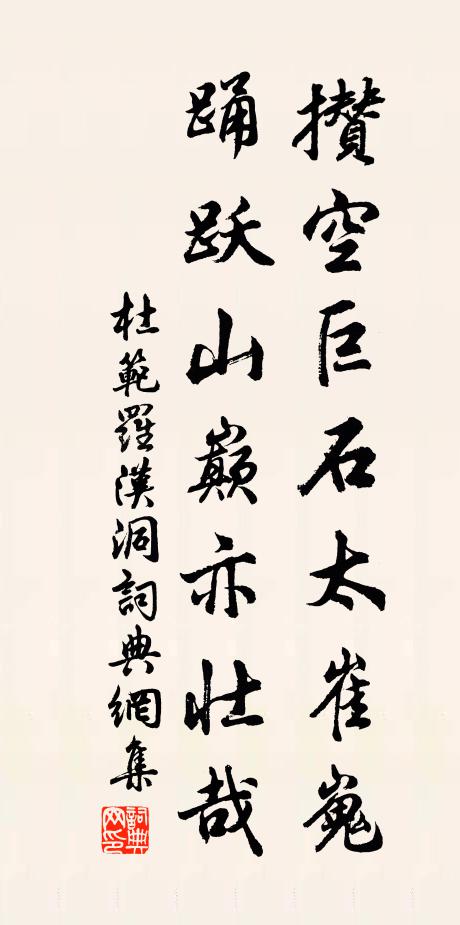 攢空巨石太崔嵬
踊跃山巔亦壯哉
杜範羅漢洞詞典網集
詞典网印